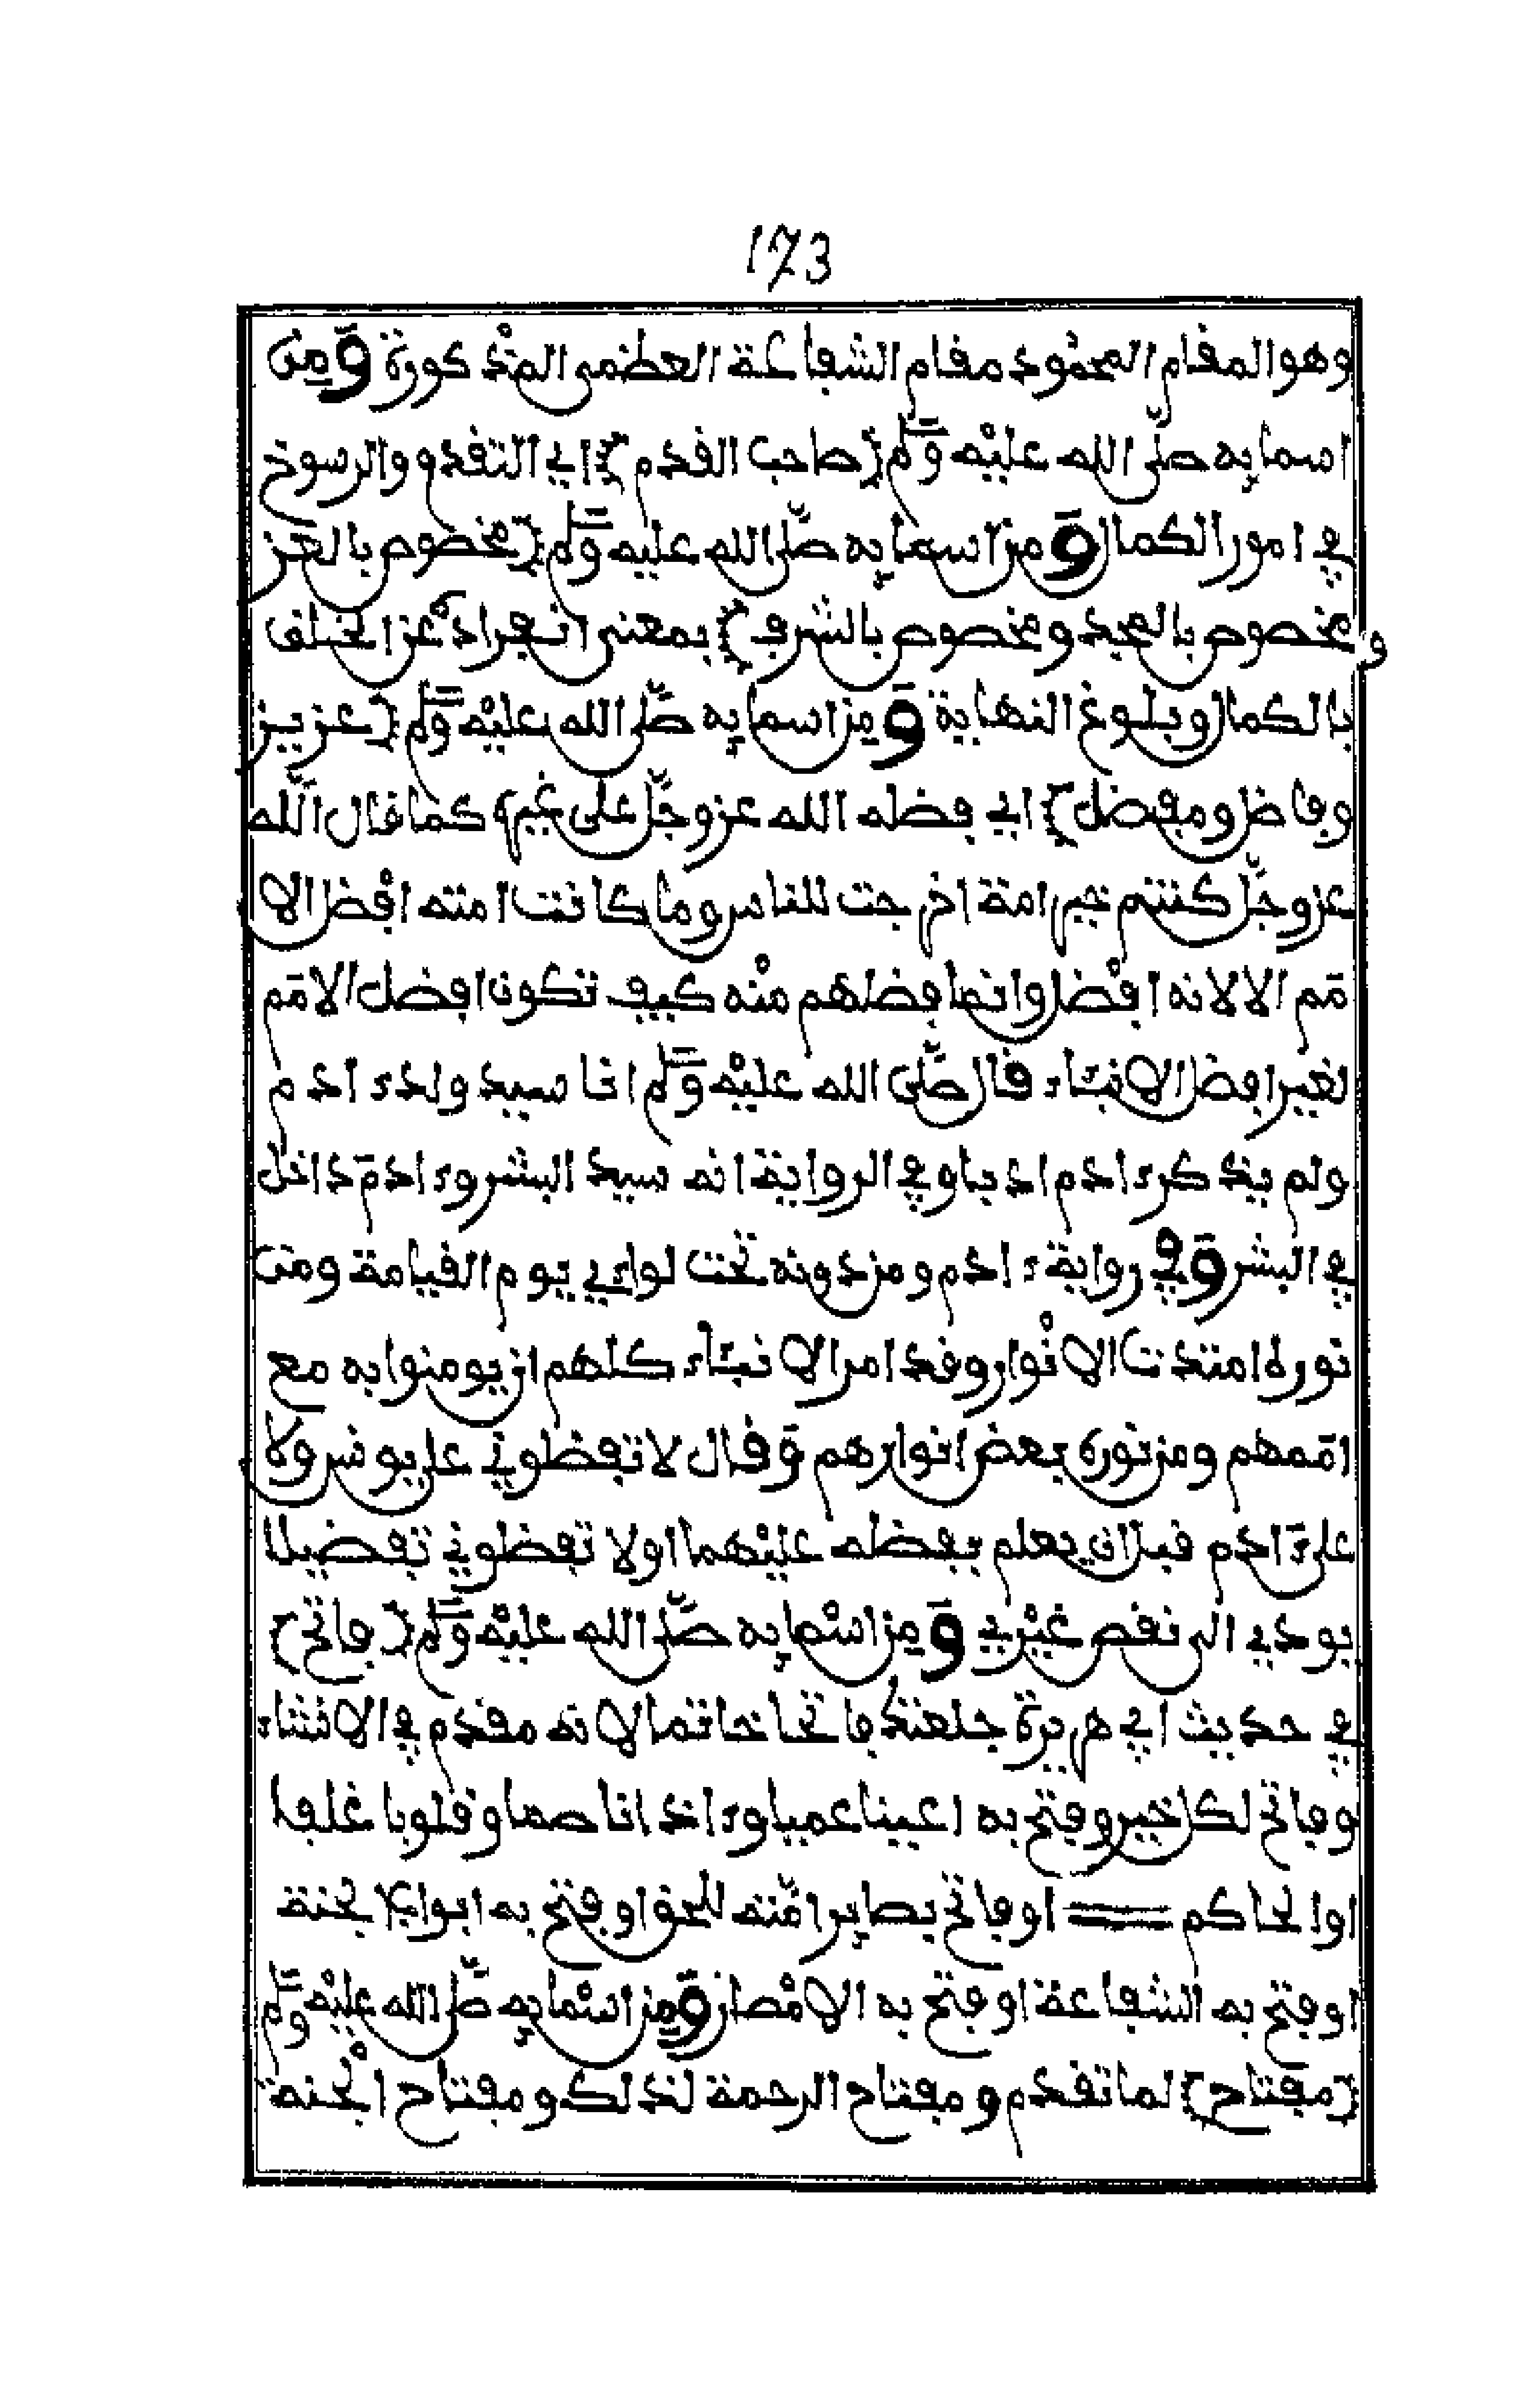 173
وهو المقام المحمود مقام الشفاعة العظمى المذكورة ومن
اسمايه صلى الله عليه وسلم {صاحب القدم} اي التقدم والرسوخ
في امور الكمال ومن اسمايه صلى الله عليه وسلم {مخصوص بالعز
ومخصوص بالمجد ومخصوص بالشرف} بمعنى انفراده عن الخلف
بالكمال وبلوغ النهاية ومن اسمايه صلى الله عليه وسلم {عزيز
وفاضل ومفضل} اي فضله الله عز وجل على غيره كما قال الله
عز وجل كنتم خير امة اخرجت للناس وما كانت امته افضل الا
مم الا لانه افضل وانما فضلهم منه كيف تكون افضل الامم
لغير افضل الانبياء قال صلى الله عليه وسلم انا سيد ولد ءادم
ولم يذكر ءادم ادبا وفي الرواية انه سيد البشر وءادم داخل
في البشر وفي رواية ءادم ومن دونه تحت لواءي يوم القيامة ومن
نوره امتدت الانوار وقد امر الانبياء كلهم ان يومنوا به مع
اممهم ومن نوره بعض انوارهم وقال لا تفضلوني على يونس ولا
على ءادم قبل ان يعلم بفضله عليهما او لا تفضلوني تفضيلا
يودي الى نقص غيري ومن اسمايه صلى الله عليه وسلم {فاتح}
في حديث ابي هريرة جلعتك فاتحا خاتما لانه مقدم في الانتثاء
وفاتح لكل خير وفتح به اعينا عميا وءاذانا صما وقلوبا غلفا
او الحاكم = او فاتح بصاير امته للحق او فتح به ابواب الجنة
او فتح به الشفاعة او فتح به الامصار ومن اسمايه صلى الله عليه وسلم
{مفتاح} لما تقدم ومفتاح الرحمة لذلك ومفتاح الجنة